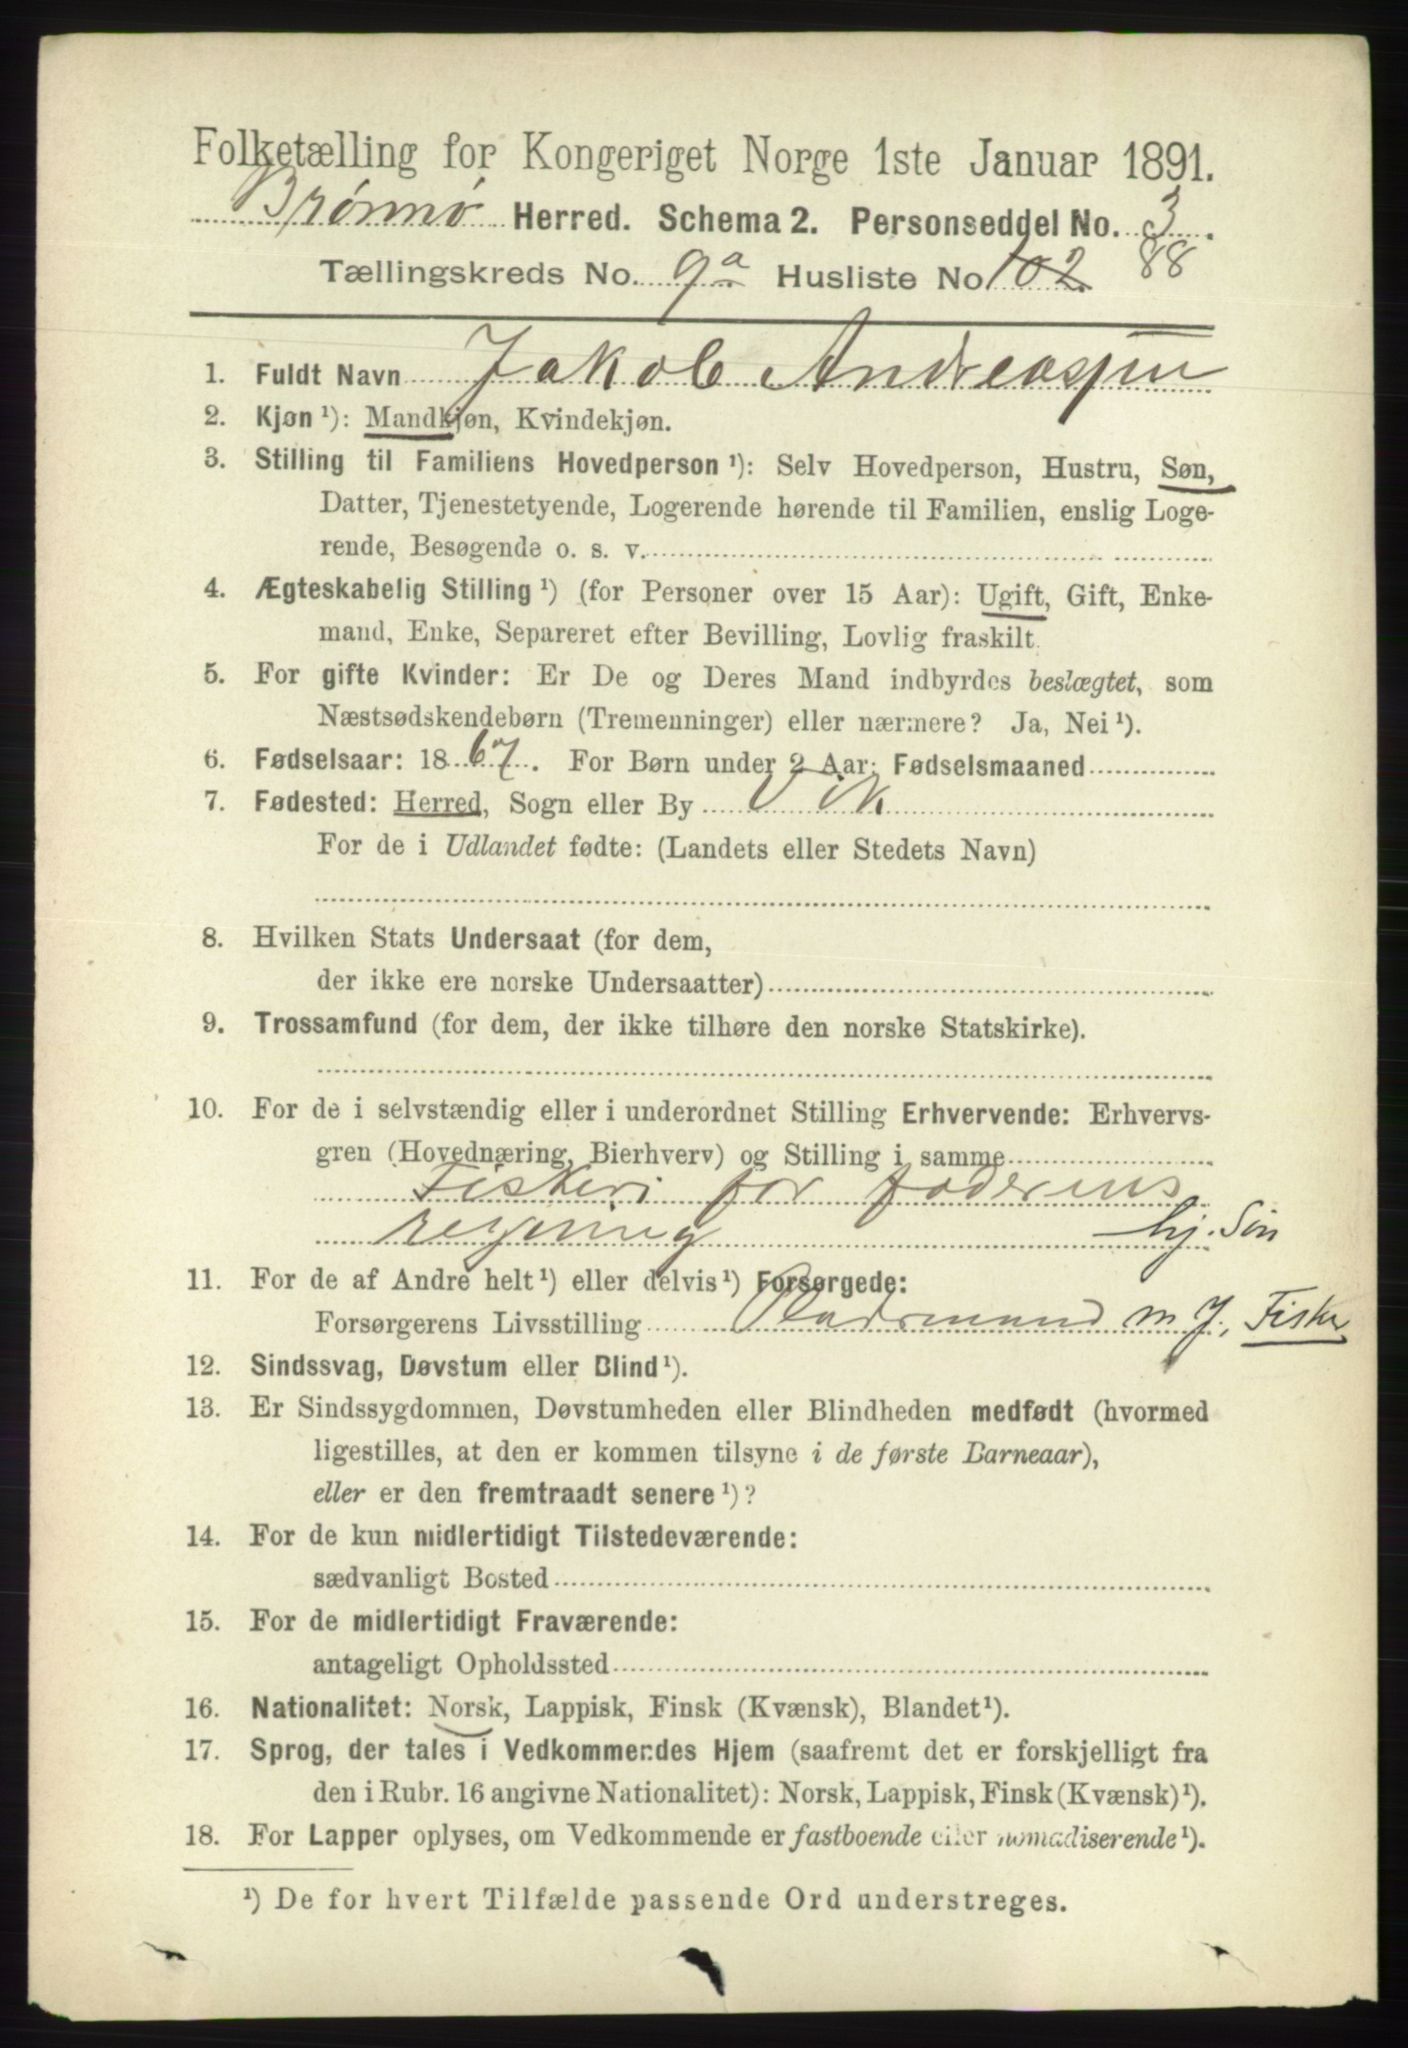 Folketælling for Kongeriget Norge 1ste Januar 1891.
Brønnø Herred. Schema 2. Personseddel No. 3.
Tællingskreds No. 9a Husliste No 102 88
1. Fuldt Navn Jakob Andreassen
2. Kjøn ¹): Mandkjøn, Kvindekjøn.
3. Stilling til Familiens Hovedperson ¹): Selv Hovedperson, Hustru, Søn,
Datter, Tjenestetyende, Logerende hørende til Familien, enslig Loge-
rende, Besøgende o. s. v.
4. Ægteskabelig Stilling ¹) (for Personer over 15 Aar): Ugift, Gift, Enke-
mand, Enke, Separeret efter Bevilling, Lovlig fraskilt.
5. For gifte Kvinder: Er De og Deres Mand indbyrdes beslægtet, som
Næstsødskendebørn (Tremenninger) eller nærmere? Ja, Nei ¹).
6. Fødselsaar: 1867. For Børn under 2 Aar: Fødselsmaaned
7. Fødested: Herred, Sogn eller By Vik
For de i Udlandet fødte: (Landets eller Stedets Navn)
8. Hvilken Stats Undersaat (for dem,
der ikke ere norske Undersaatter)
9. Trossamfund (for dem, der ikke tilhøre den norske Statskirke).
10. For de i selvstændig eller i underordnet Stilling Erhvervende: Erhvervs-
gren (Hovednæring, Bierhverv) og Stilling i samme
Fiskeri for faderens
regning hj. Søn
11. For de af Andre helt ¹) eller delvis ¹) Forsørgede:
Forsørgerens Livsstilling Pladsmand m J, Fisker
12. Sindssvag, Døvstum eller Blind ¹).
13. Er Sindssygdommen, Døvstumheden eller Blindheden medfødt (hvormed
ligestilles, at den er kommen tilsyne i de første Barneaar),
eller er den fremtraadt senere ¹)?
14. For de kun midlertidigt Tilstedeværende:
sædvanligt Bosted
15. For de midlertidigt Fraværende:
antageligt Opholdssted
16. Nationalitet: Norsk, Lappisk, Finsk (Kvænsk), Blandet ¹).
17. Sprog, der tales i Vedkommendes Hjem (saafremt det er forskjelligt fra
den i Rubr. 16 angivne Nationalitet): Norsk, Lappisk, Finsk (Kvænsk) ¹).
18. For Lapper oplyses, om Vedkommende er fastboende eller nomadiserende ¹).
¹) De for hvert Tilfælde passende Ord understreges.